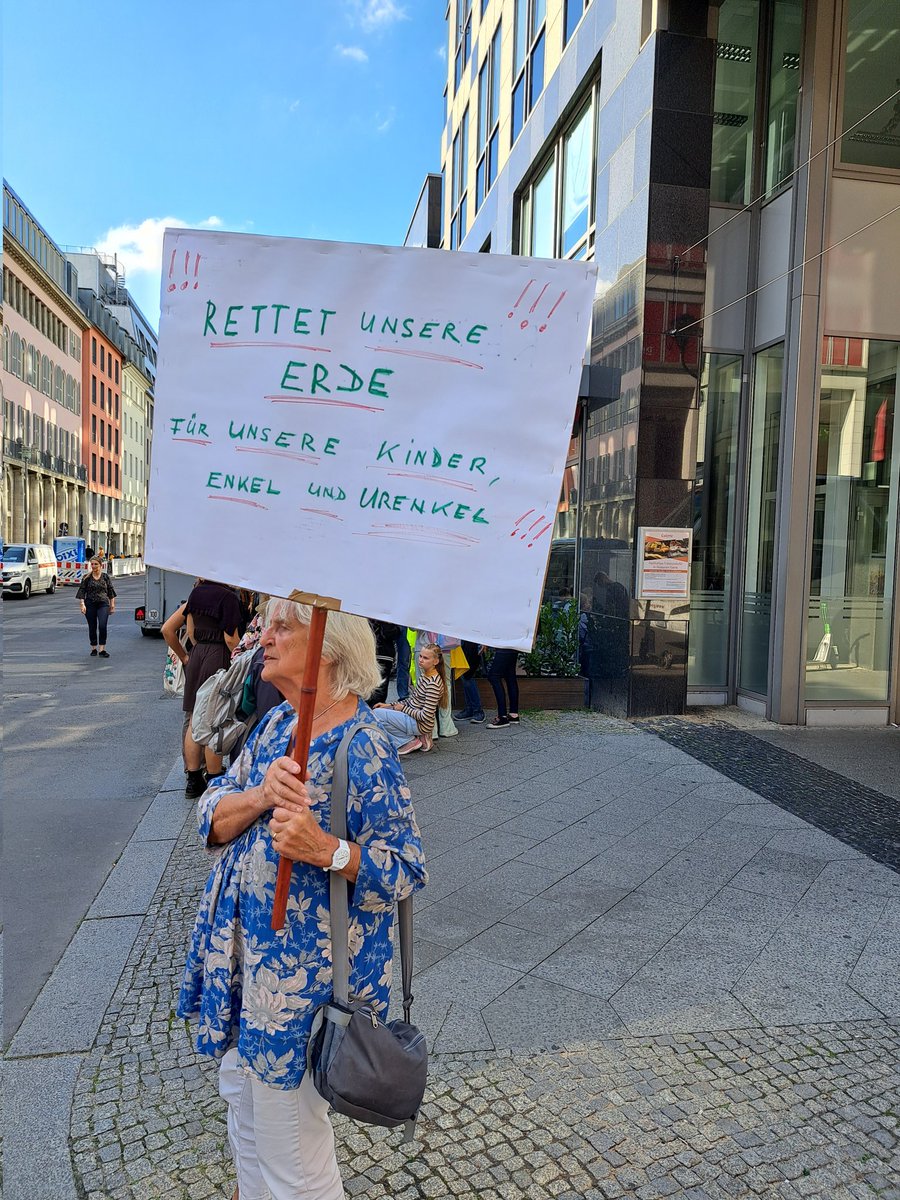 !!! !!!
RETTET UNSERE
ERDE
FÜR UNSERE KINDER,
ENKEL UND URENKEL !!!